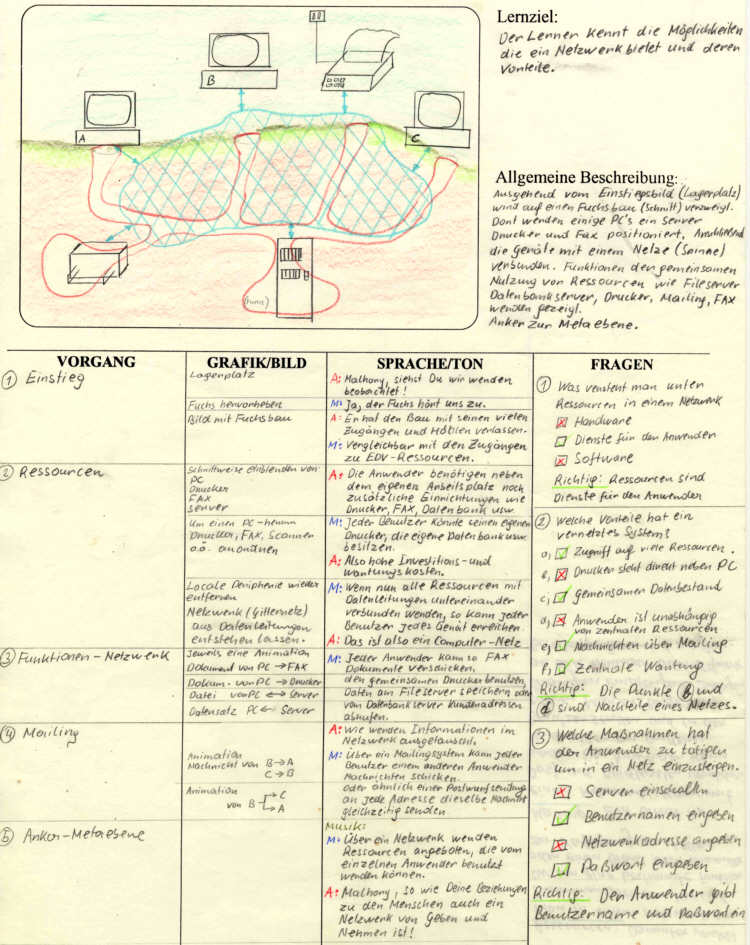 Lernziel:
Der Lerner kennt die Möglichkeiten
die ein Netzwerk bietet und deren
Vorteile.
B
A
C
Allgemeine Beschreibung:
Ausgehend vom Einstiegsbild (Lagerplatz)
wird auf einen Fuchsbau (Schnitt) verzweigt.
Dort werden einige PC's ein Server
Drucker und Fax positioniert. Anschließend
die geräte mit einem Netze (Spinne)
verbunden. Funktionen der gemeinsamen
Nutzung von Ressourcen wie Fileserver
Datenbankserver, Drucker, Mailing, FAX
werden gezeigt.
Anker zur Metaebene.
VORGANG
GRAFIK/BILD
SPRACHE/TON
FRAGEN
① Einstieg
Lagerplatz
Fuchs hervorheben
Bild mit Fuchsbau
A: Malhony, siehst Du wir werden
beobachtet!
M: Ja, der Fuchs hört uns zu.
A: Er hat den Bau mit seinen vielen
Zugängen und Höhlen verlassen.
M: Vergleichbar mit den Zugängen
zu EDV-Ressourcen.
② Ressourcen
Schrittweise einblenden von:
PC
Drucker
FAX
Server
Um einen PC-herum
Drucker, FAX, Scanner
o.a. anordnen
Locale Peripherie wieder
entfernen
Netzwerk (Gitternetz)
aus Datenleitungen
entstehen lassen.
A: Die Anwender benötigen neben
dem eigenen Arbeitsplatz noch
zusätzliche Einrichtungen wie
Drucker, FAX, Datenbank usw.
M: Jeder Benutzer könnte seinen eigenen
Drucker, die eigene Datenbank usw.
besitzen.
A: Also hohe Investitions- und
Wartungskosten.
M: Wenn nun alle Ressourcen mit
Datenleitungen untereinander
verbunden werden, so kann jeder
Benutzer jedes Gerät erreichen.
A: Das ist also ein Computer-Netz
③ Funktionen-Netzwerk
Jeweils eine Animation
Dokument von PC → FAX
Dokum. von PC → Drucker
Datei von PC ↔ Server
Datensatz PC ← Server
M: Jeder Anwender kann so FAX
Dokumente verschicken,
den gemeinsamen Drucker benutzen,
Daten am Fileserver speichern oder
vom Datenbankserver Kundenadressen
abrufen.
④ Mailing
Animation
Nachricht von B → A
C → B
Animation
von B → C
→ A
A: Wie werden Informationen im
Netzwerk ausgetauscht.
M: Über ein Mailingsystem kann jeder
Benutzer einem anderen Anwender
Nachrichten schicken.
oder ähnlich einer Postwurfsendung
an jede Adresse dieselbe Nachricht
gleichzeitig senden.
⑤ Anker-Metaebene
Musik:
M: Über ein Netzwerk werden
Ressourcen angeboten, die vom
einzelnen Anwender benutzt
werden können.
A: Malhony, so wie Deine Beziehungen
zu den Menschen auch ein
Netzwerk von Geben und
Nehmen ist!
① Was versteht man unter
Ressourcen in einem Netzwerk
Hardware
Dienste für den Anwender
Software
Richtig: Ressourcen sind
Dienste für den Anwender
② Welche Vorteile hat ein
vernetztes System?
a, Zugriff auf viele Ressourcen.
b, Drucker steht direkt neben PC
c, gemeinsamen Datenbestand
d, Anwender ist unabhängig
von zentralen Ressourcen
e, Nachrichten über Mailing
f, Zentrale Wartung
Richtig: Die Punkte b und
d sind Nachteile eines Netzes.
③ Welche Maßnahmen hat
der Anwender zu tätigen
um in ein Netz einzusteigen.
Server einschalten
Benutzernamen eingeben
Netzwerkadresse angeben
Paßwort eingeben
Richtig: Der Anwender gibt
Benutzername und Paßwort ein